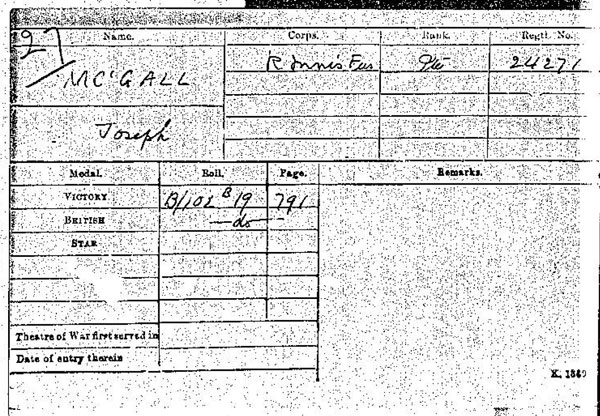 27
Name. Corps. Rank. Regtl. No.
McGALL R Innis Fus Pte 24271
Joseph
Medal. Roll. Page. Remarks.
VICTORY B/102 B 19 791
BRITISH —do—
STAR
Theatre of War first served in
Date of entry therein
K. 1380